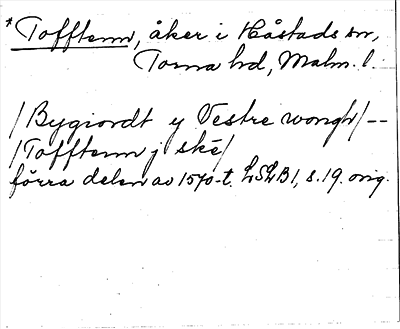 * Tofftenn, åker i Håstads sn,
Torna hd, Malm. l.
/Bygiordt y Vestre wongh/--
/Tofftenn j ské/
förra delen av 1570-t. LSLB 1, s. 19. orig.